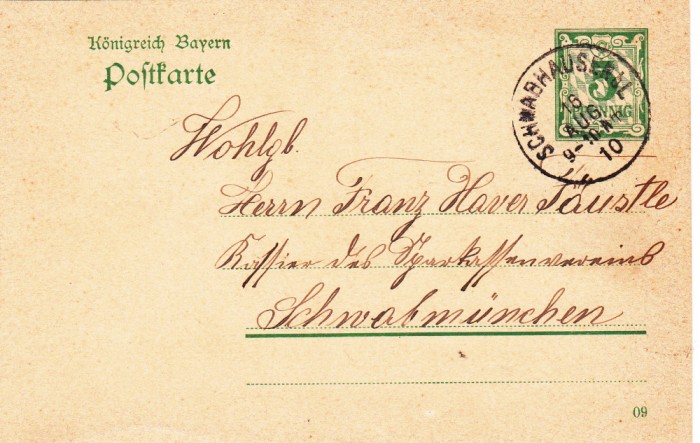 Königreich Bayern
Postkarte
5
PFENNIG
SCHWABHAUSEN
16
AUG
9-10
10
Wohlgb.
Herrn Franz Xaver Täustle
Kassier des Sparkassenvereins
Schwabmünchen
09